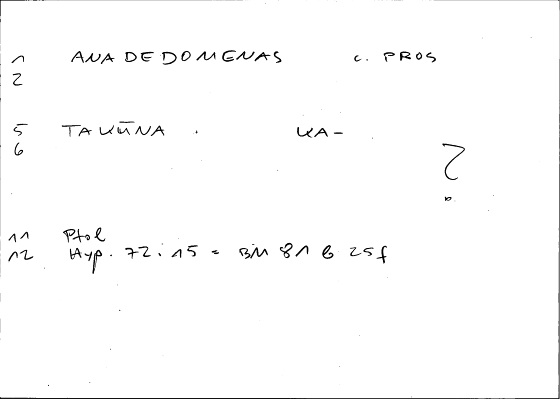 1 ANADEDOMENAS c. PROS
2
5 TAKŪNA . KA-
6
?
11 Ptol
12 Hyp. 72.15 = BM 81 b 25f